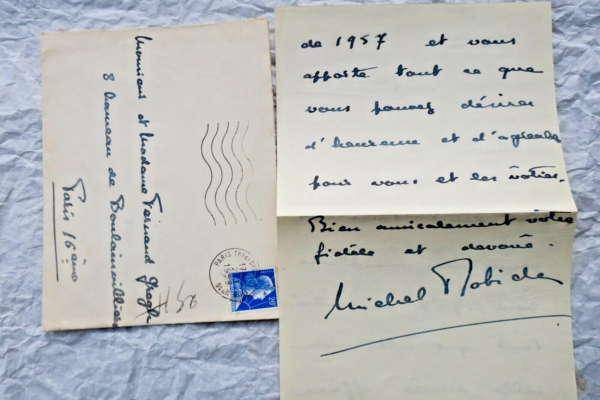 Monsieur et Madame Fernand Gregh
8 hameau de Boulainvilliers
Paris 16ème
PARIS
20F
de 1957 et vous
apporte tout ce que
vous pouvez désirer
d'heureux et d'agréable
pour vous et les vôtres.
Bien amicalement votre
fidèle et dévoué.
Michel